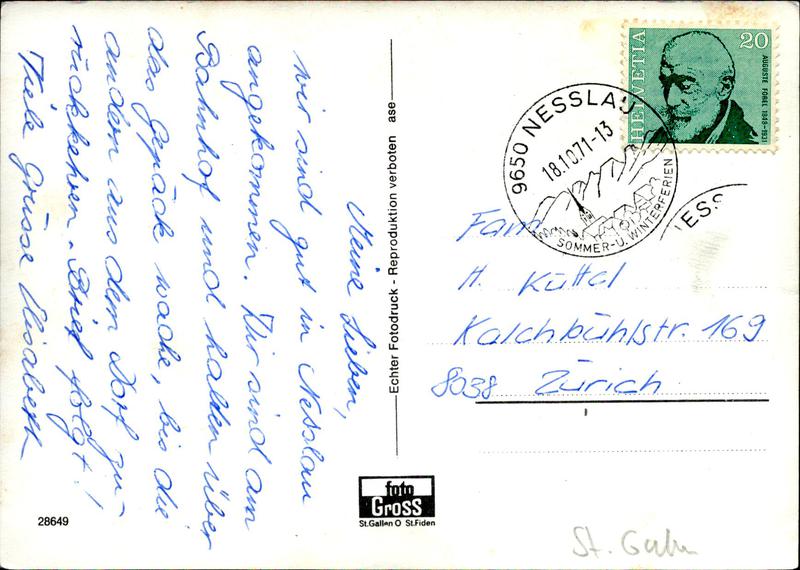 Meine Lieben,
wir sind gut in Nesslau
angekommen. Wir sind am
Bahnhof und halten über
das Gepäck wache, bis die
andern aus dem Dorf zu-
rückkehren. Brief folgt!
Viele Grüsse Elisabeth
28649
Echter Fotodruck - Reproduktion verboten ase
foto
Gross
St.Gallen O St.Fiden
HELVETIA
20
AUGUSTE FOREL 1848-1931
9650 NESSLAU
18.10.71-13
SOMMER- U. WINTERFERIEN
NESS
Fam.
H. Küttel
Kalchbühlstr. 169
8038 Zürich
St. Gallen